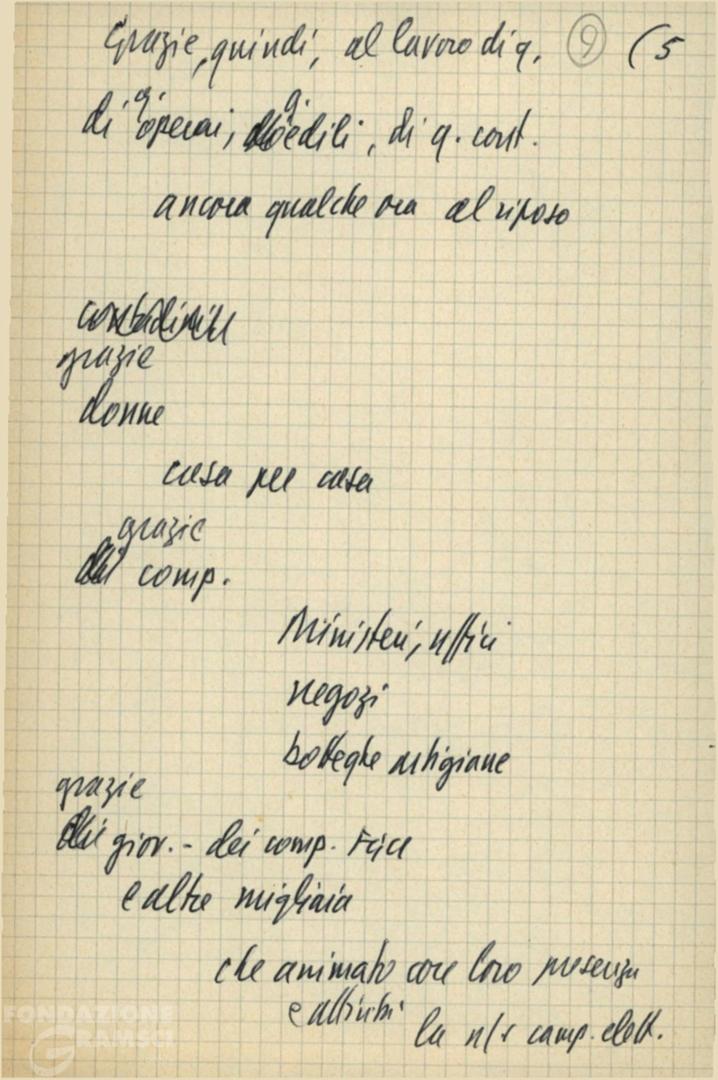 Grazie, quindi, al lavoro di q. 9 (5
q. q.
di operai, edili, di q. cont.
ancora qualche ora al riposo
grazie
donne
casa per casa
grazie
comp.
Ministeri, uffici
negozi
botteghe artigiane
grazie
giov. - dei comp. FGCI
e altre migliaia
che animato con loro presenza
e attività
la n/s camp. elett.
FONDAZIONE
GRAMSCI